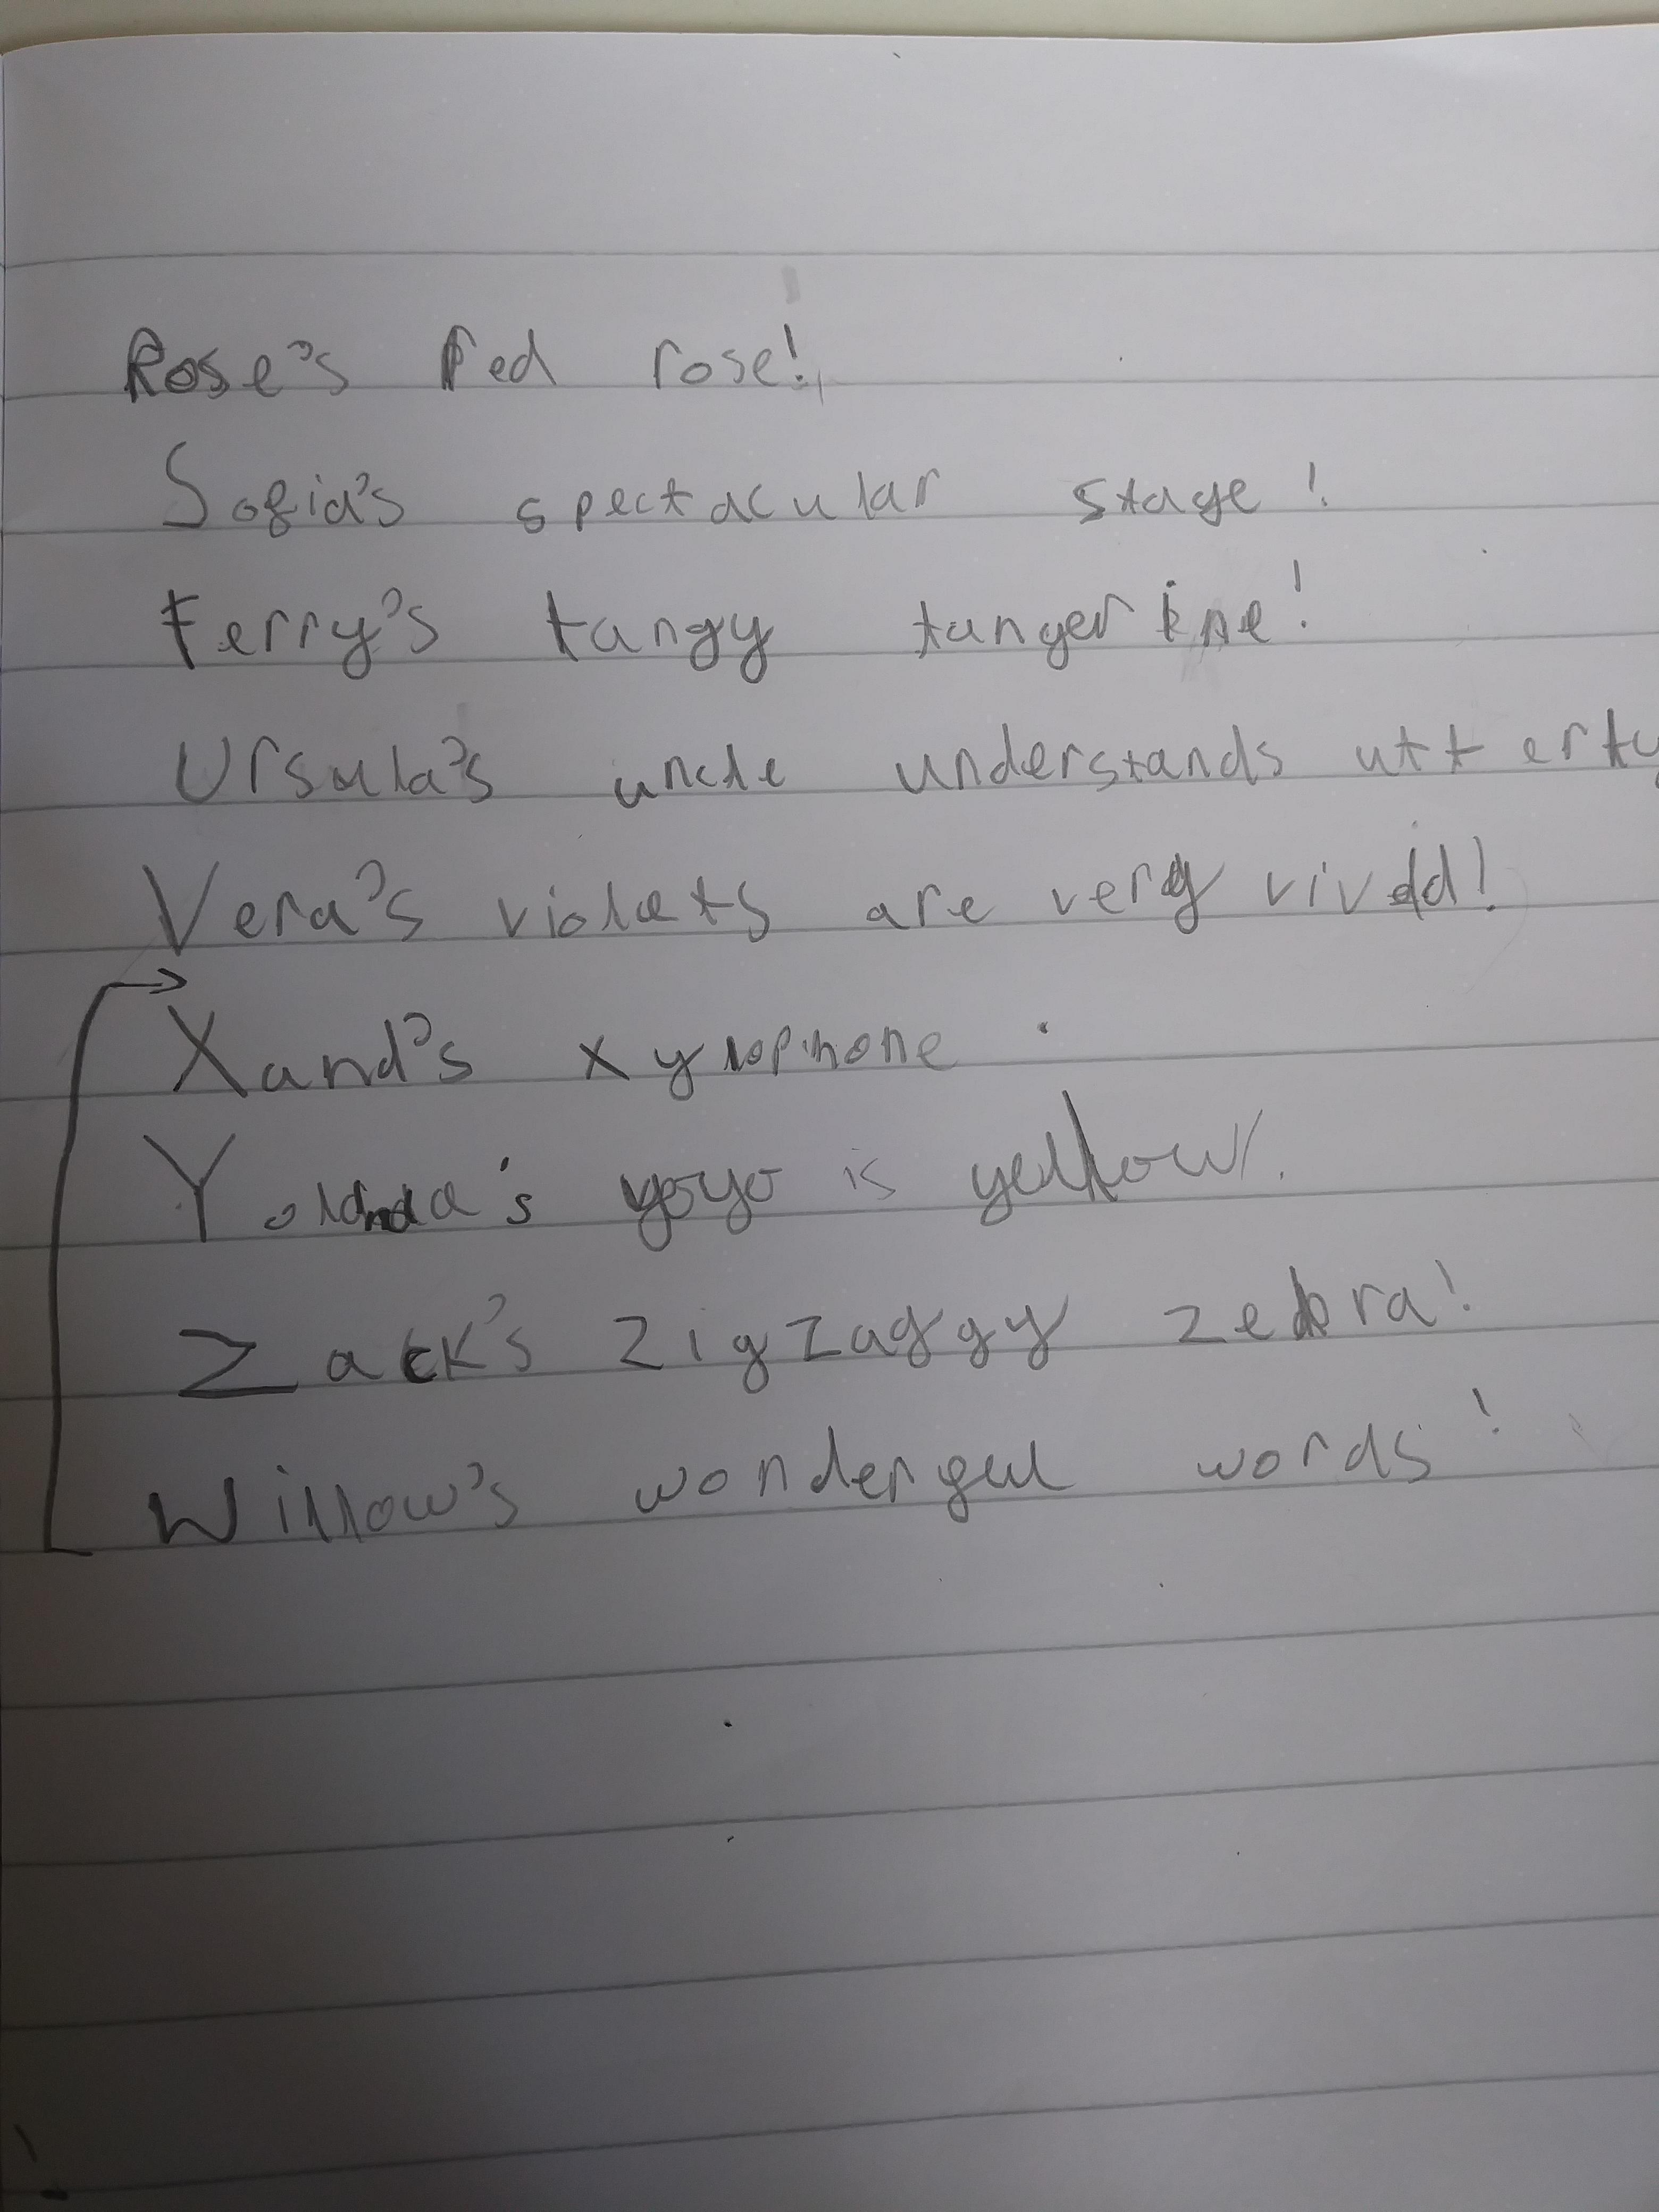 Rose's red rose!
Sofia's spectacular stage!
Terry's tangy tangerine!
Ursula's uncle understands
Vera's violets are very vivid!
Xand's xylophone.
Yolanda's yoyo is yellow.
Zack's zigzaggy zebra!
Willow's wonderful words!